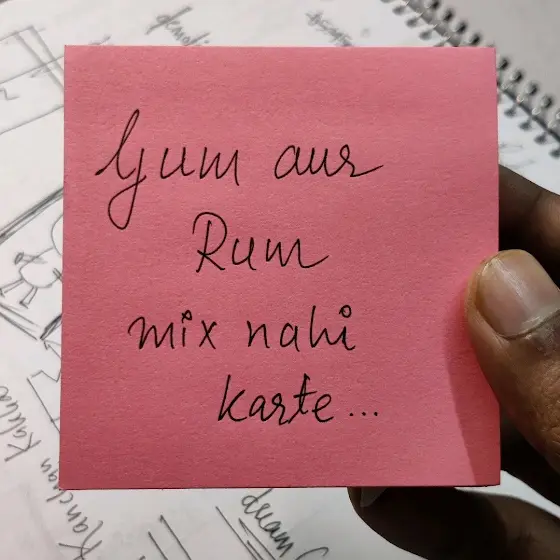 Gum aur
Rum
mix nahi
karte...